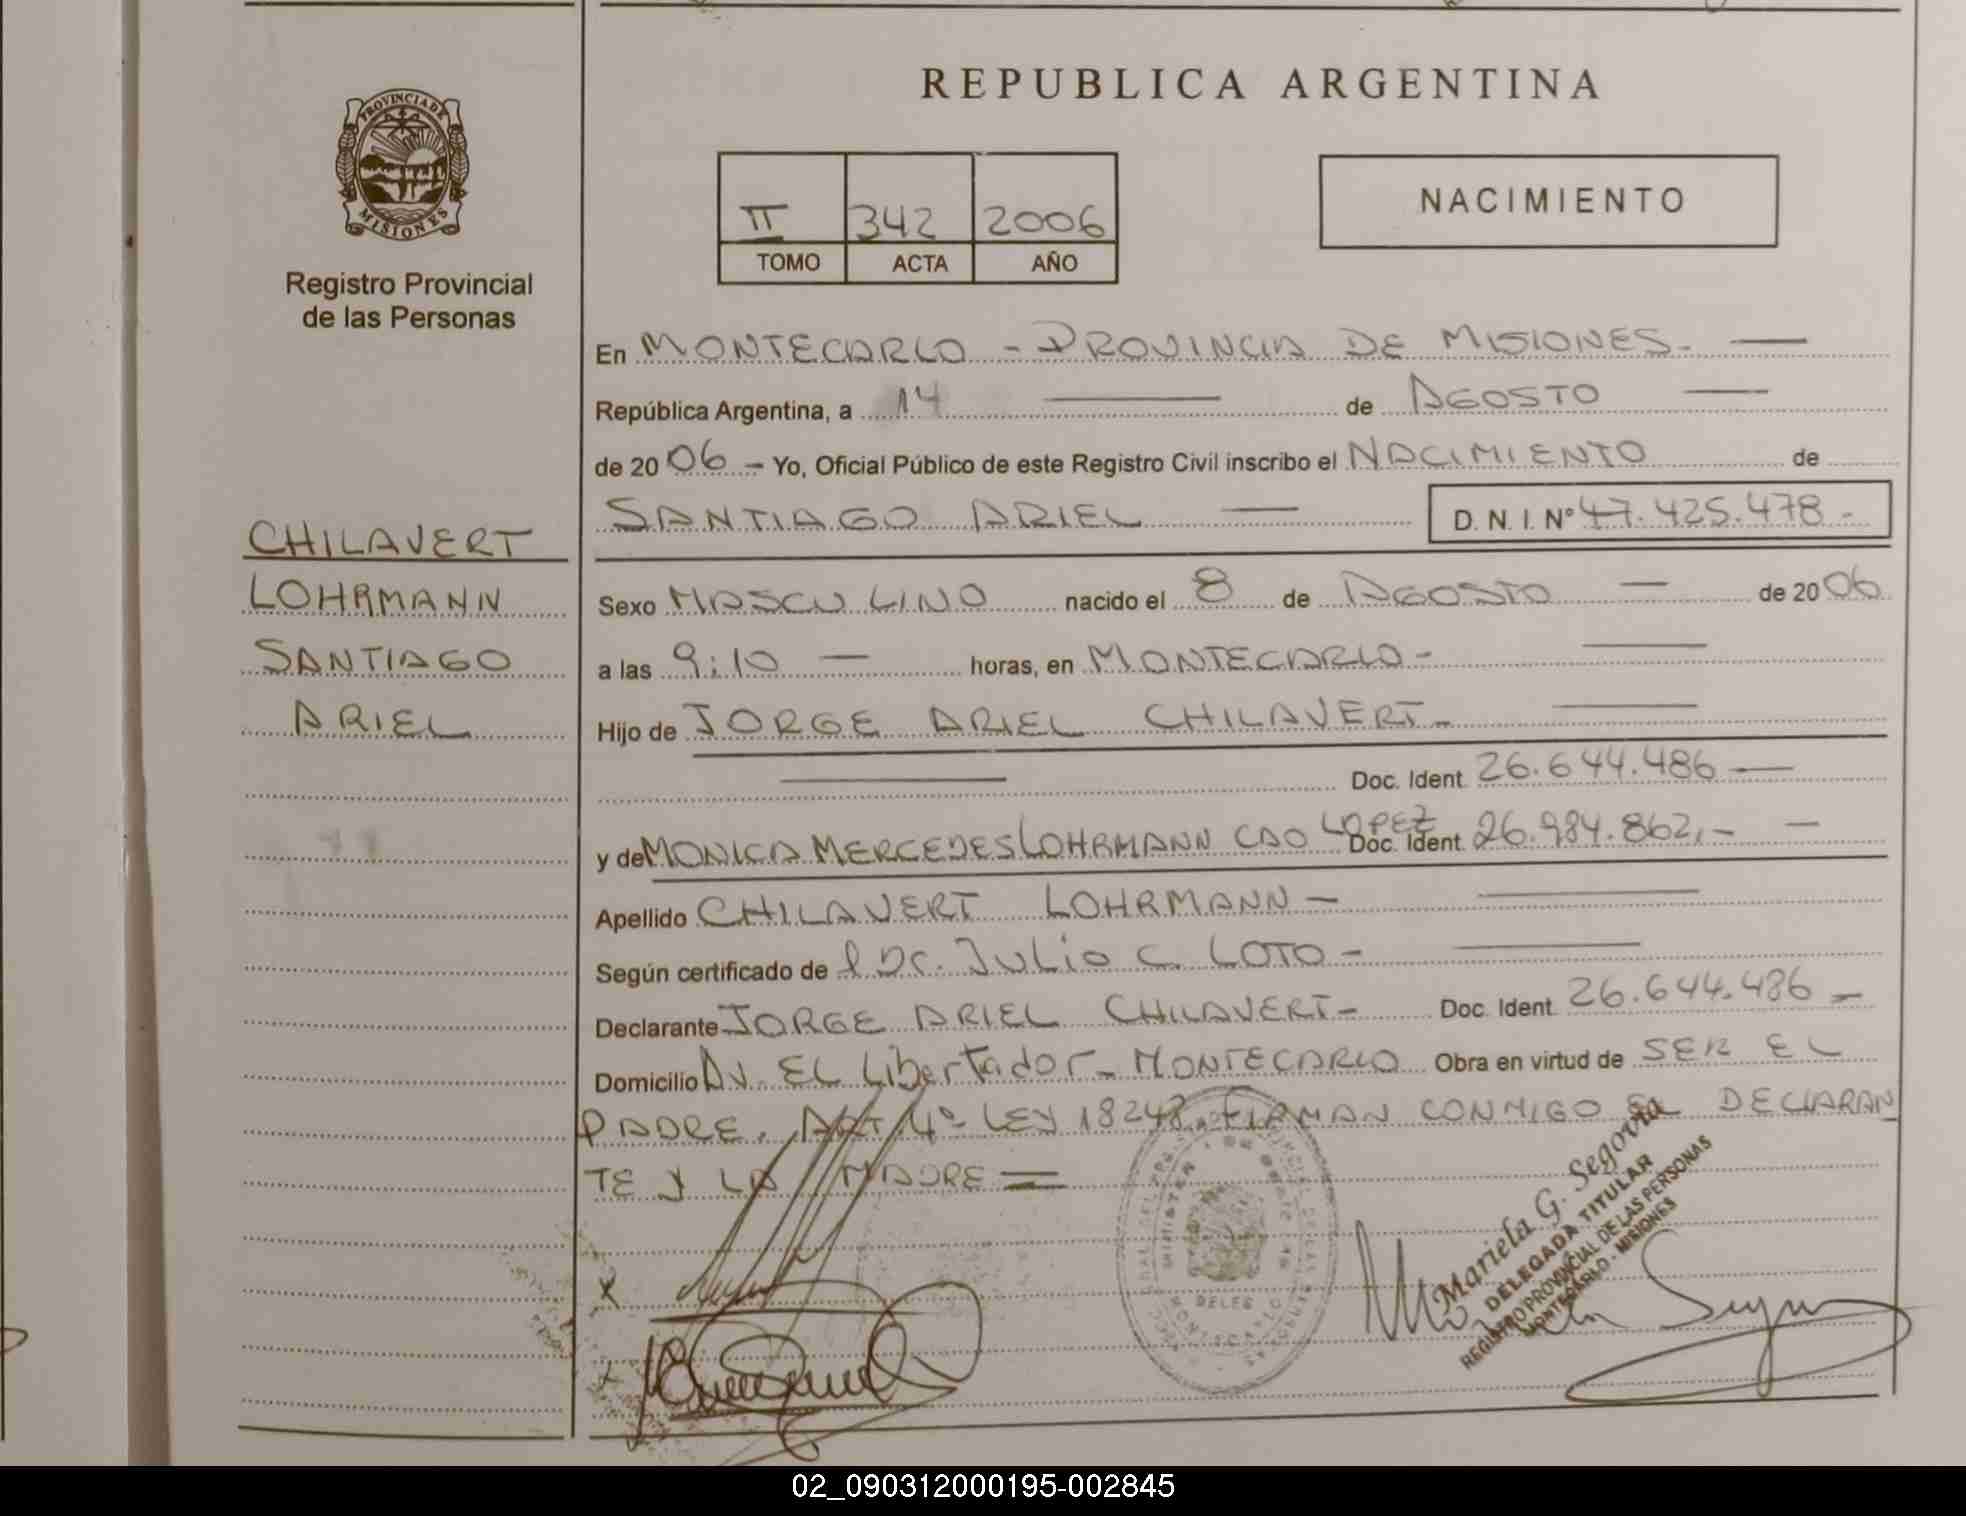 REPUBLICA ARGENTINA
PROVINCIA DE
MISIONES
Registro Provincial
de las Personas
II 342 2006
TOMO ACTA AÑO
NACIMIENTO
En MONTECARLO - PROVINCIA DE MISIONES. —
República Argentina, a 14 — de AGOSTO —
de 20 06 - Yo, Oficial Público de este Registro Civil inscribo el NACIMIENTO de
SANTIAGO ARIEL — D. N. I. N° 47.425.478 -
CHILAVERT
LOHRMANN
SANTIAGO
ARIEL
Sexo MASCULINO nacido el 8 de AGOSTO — de 20 06
a las 9:10 — horas, en MONTECARLO - —
Hijo de JORGE ARIEL CHILAVERT - —
— Doc. Ident. 26.644.486 —
y de MONICA MERCEDES LOHRMANN CAO LOPEZ Doc. Ident. 26.984.862,- —
Apellido CHILAVERT LOHRMANN - —
Según certificado de Dr. JULIO C. LOTO - —
Declarante JORGE ARIEL CHILAVERT - Doc. Ident. 26.644.486 -
Domicilio AV. EL Libertador - MONTECARLO Obra en virtud de SER EL
PADRE. ART 4º LEY 18248. FIRMAN CONMIGO EL DECLARAN
TE Y LA MADRE =
X
X
Mariela G. Segovia
DELEGADA TITULAR
REGISTRO PROVINCIAL DE LAS PERSONAS
MONTECARLO - MISIONES
02_090312000195-002845